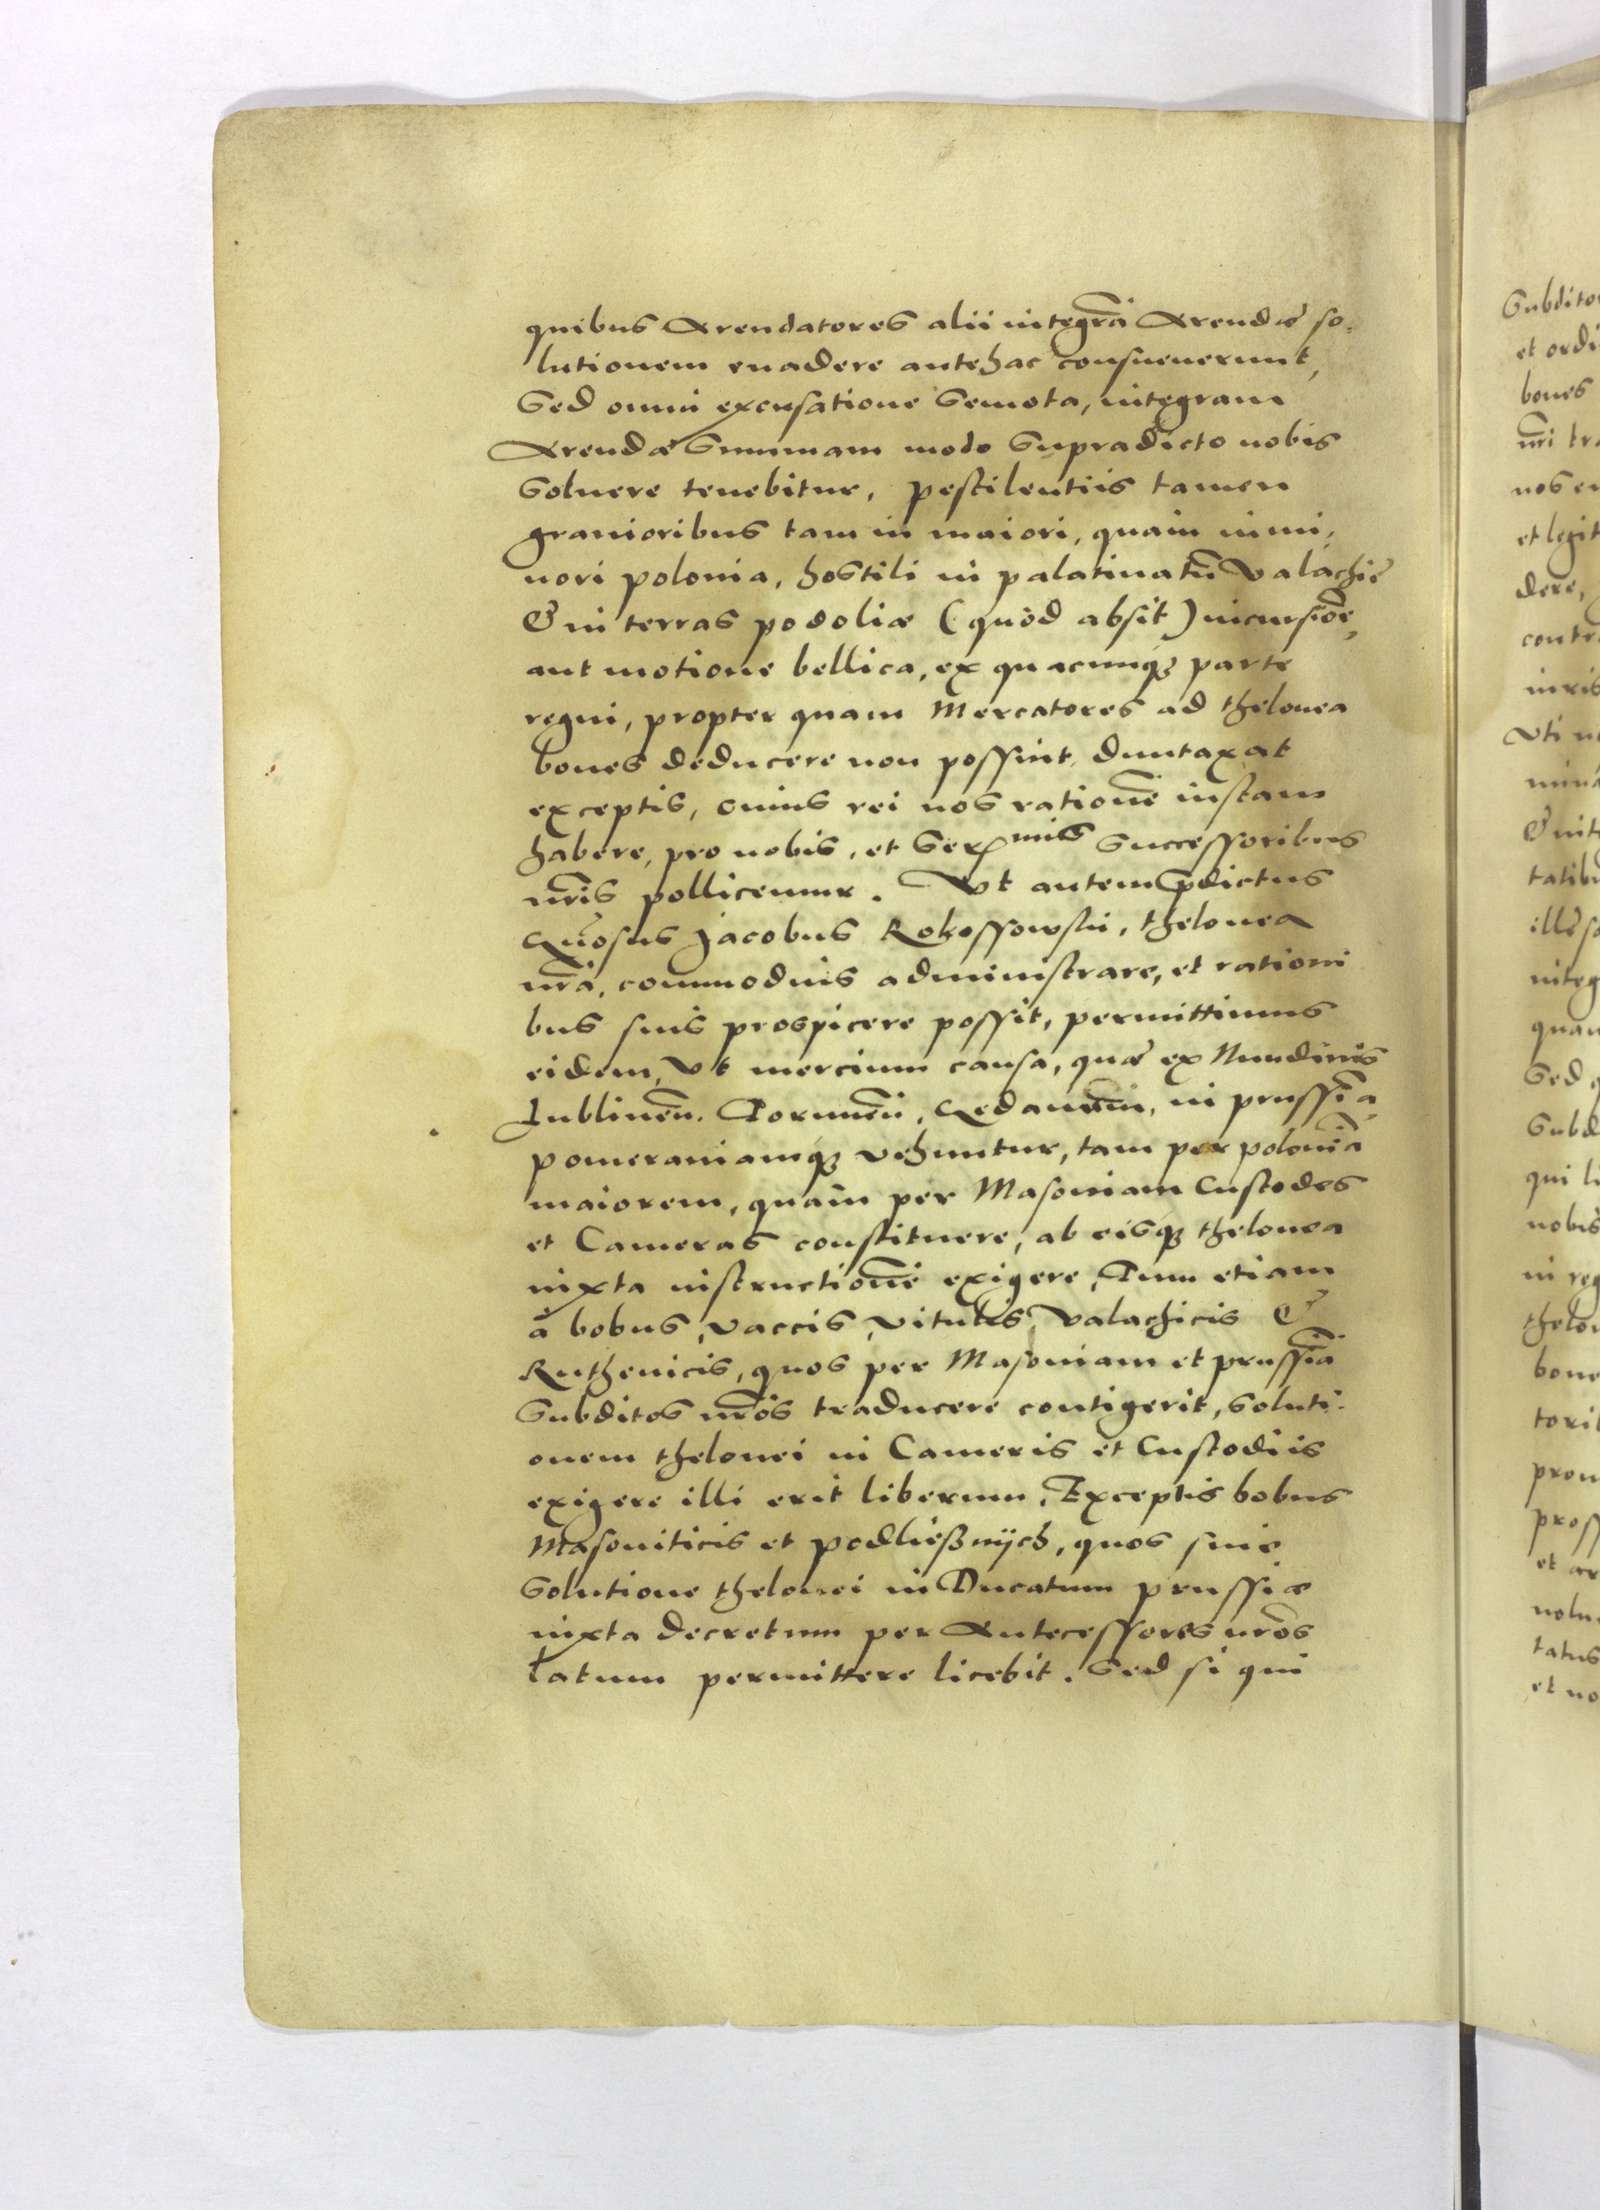 quibus Arendatores alii integrā Arendæ so-
lutionem euadere antehac consueuerunt,
Sed omni excusatione Semota, integram
Arendæ Summam modo Supradicto nobis
Soluere tenebitur, pestilentiis tamen
grauioribus tam in maiori, quàm in mi,
nori polonia, hostili in palatinatū Valachię
& in terras podoliæ (quòd absit) incursiōe,
aut motione bellica, ex quacumq3 parte
regni, propter quam Mercatores ad thelonea
boues deducere non possint duntaxat
exceptis, cuius rei nos rationē iustam
habere, pro nobis, et Ser^mis Successoribus
nr̄is pollicemur. Vt autem p̄dictus
Gn̄osus Jacobus Rokossowski, thelonea
nr̄a, commodius administrare, et rationi
bus suis prospicere possit, permittimus
eidem, Vt mercium causa, quæ ex Nundinis
Lublineñ. Toruneñ, Gedaneñ, in prussiā,
pomeraniamq3 vehuntur, tam per poloniā
maiorem, quàm per Masouiam Custodes
et Cameras constituere, ab eisq3 thelonea
iuxta instructionē exigere, Tum etiam
à bobus, vaccis, vitulis, Valachicis &
Ruthenicis, quos per Masouiam et prussiā
Subditos nr̄os traducere contigerit, Soluti-
onem thelonei in Cameris et Custodiis
exigere illi erit liberum, Exceptis bobus
Masouiticis et podließnych, quos sine
Solutione thelonei in Ducatum prussiæ
iuxta decretum per Antecessores nr̄os
latum permittere licebit. Sed si qui
Subdito
et ordi
boues
nr̄i tra
nos e
et legit
dere,
contr
iuris
Vti n
min
& int
tatib
ille s
integ
quam
Sed
Subd
qui li
nobis
in reg
thelo
boue
torib
prou
pross
et ar
nolu
tatus
et no